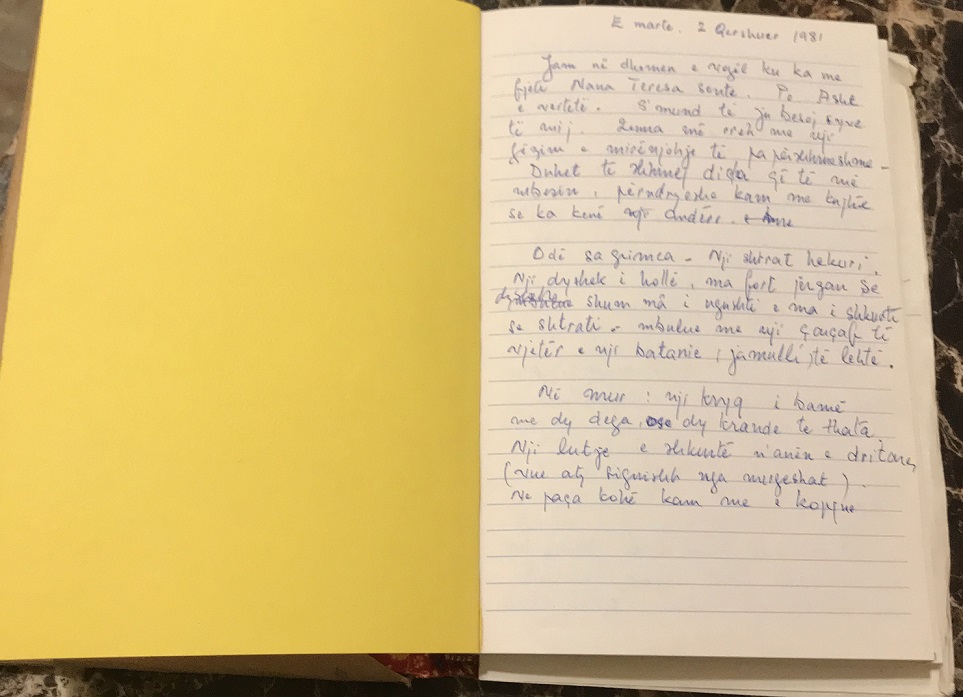 E marte, 2 Qershuer 1981
Jam në dhomen e vogël ku ka me
fjetë Nana Teresa sonte. Po Asht
e vertetë. S'mund të ju besoj syve
të mij. Zemra më rreh me nji
gëzim e mirënjohje të papërshkrueshme -
Duhet të shkruej diçka që të më
mbesin, përndryeshe kam me kujtue
se ka kenë nji andërr.
Odë sa grimca - Nji shtrat hekuri.
Nji dyshek i hollë, ma fort jorgan se
dyshek shum mâ i ngushtë e ma i shkurtë
se shtrati - mbulue me nji çarçaf të
vjetër e nji batanie, jamulli, të lehtë.
Në mur : nji kryq i bamë
me dy dega, ose dy krande te thata
Nji lutje e shkurtë n'anën e dritares
(vue aty sigurisht nga murgeshat).
Ne paça kohë kam me e kopjue